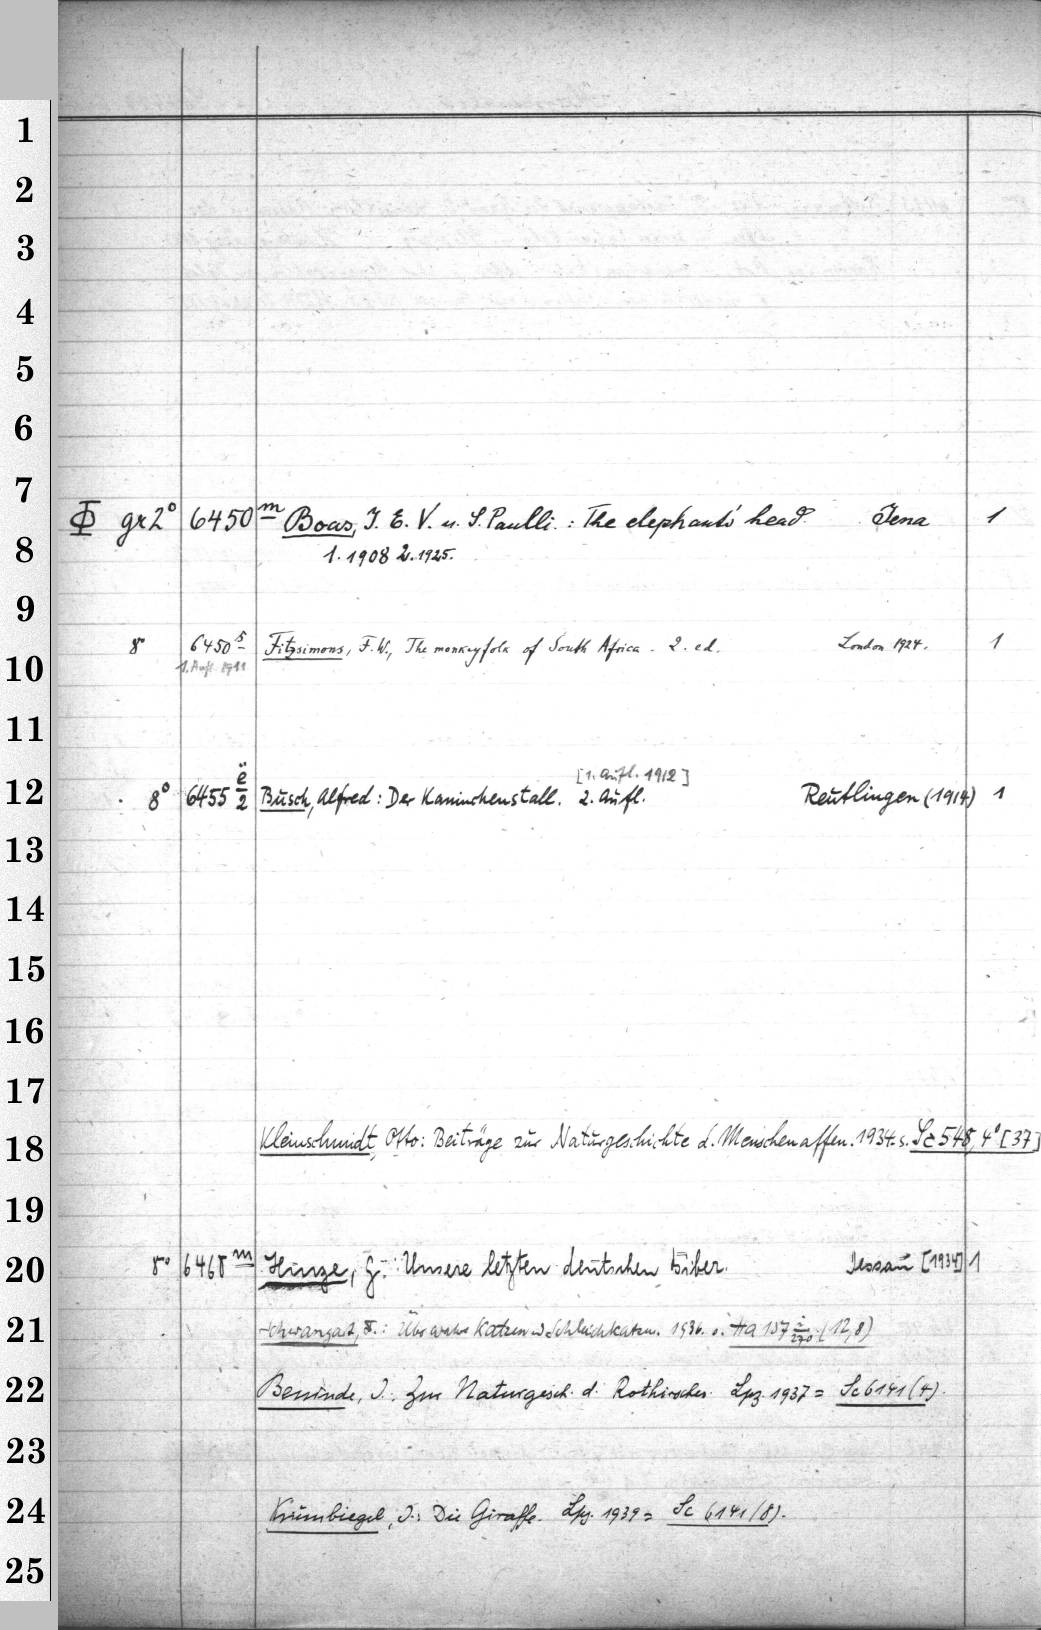 1
2
3
4
5
6
7
Φ gr2° 6450 m Boas, J. E. V. u. S. Paulli. : The elephants' head. Jena 1
8
1. 1908 2. 1925.
9
8° 6450 s Fitzsimons, F. W., The monkeyfolk of South Africa. 2. ed. London 1924. 1
10
1. Aufl. 1911
11
[1. Aufl. 1912]
12
8° 6455 ë/2 Busch, Alfred: Der Kaninchenstall. 2. Aufl. Reutlingen (1914) 1
13
14
15
16
17
18
Kleinschmidt, Otto: Beiträge zur Naturgeschichte d. Menschenaffen. 1934. s. Sc 548, 4° [37]
19
20
8° 6468 m Hinze, G.: Unsere letzten deutschen Biber. Dessau [1934] 1
21
Schwangart, F.: Über Katzen u Schleichkatzen. 1936. s. Ha 157 (12,8)
22
Beninde, J. Zur Naturgesch. d. Rothirsches. Lpz. 1937 = Sc 6141 (4).
23
24
Krumbiegel, J.: Die Giraffe. Lpz. 1939 = Sc 6141 (8).
25